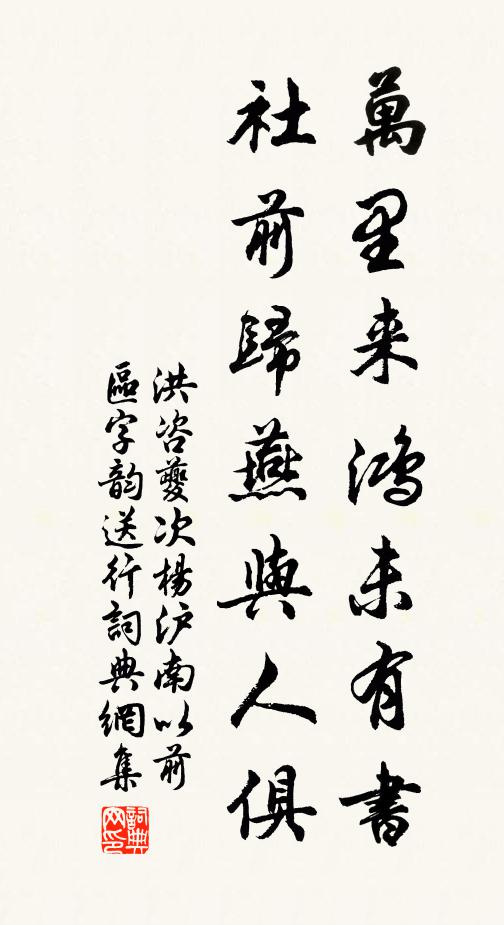 萬里来鴻未有書
社前歸燕與人俱
洪咨夔次楊沪南以前
區字韵送行詞典網集
詞典网印